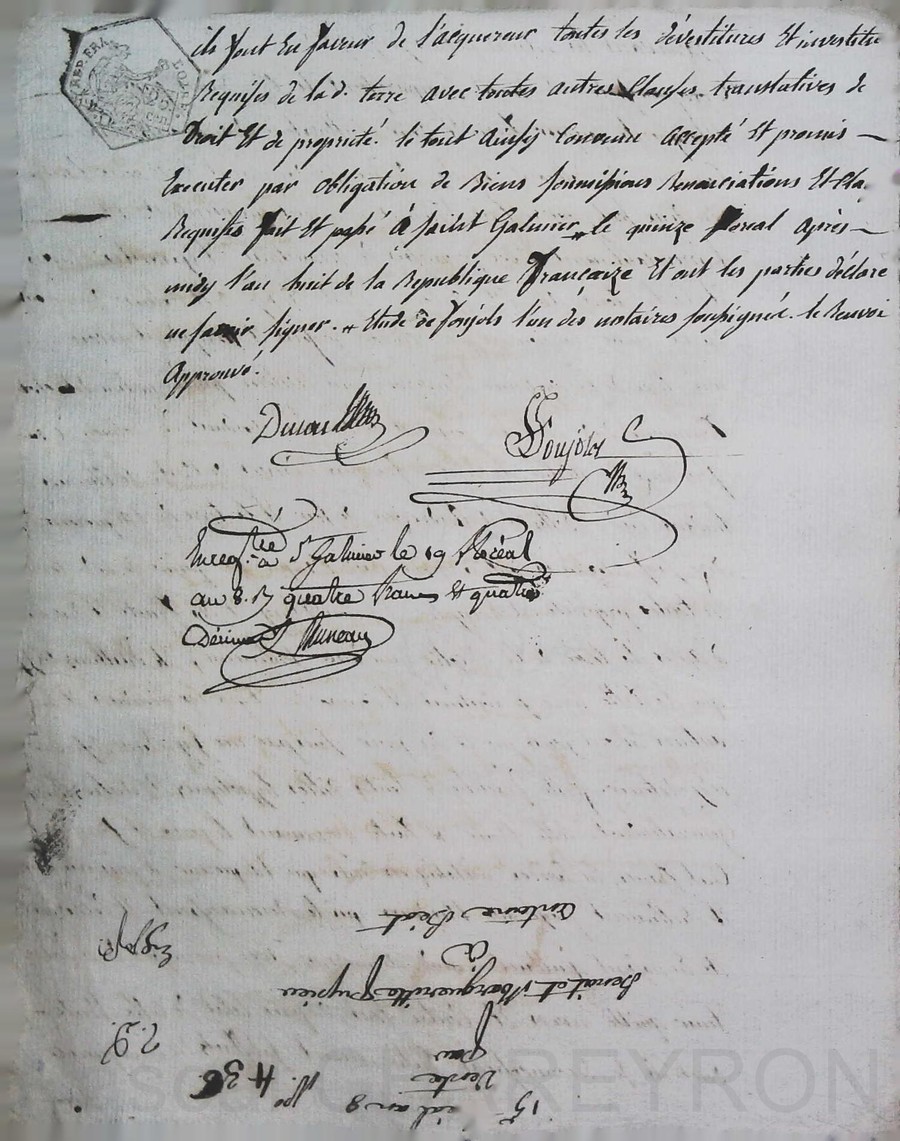 ils font En faveur de l'acquereur toutes les devestitures Et investitu
Requises de lad. terre avec toutes autres Clauses translatives de
Droit Et de propriété. le tout Ainsy Convenu accepté Et promis
Executer par obligation de Biens soumissions Renonciations Et Cla.
Requises fait Et passé À saint Galmier le quinze floreal après
midy l'an huit de la Republique françaize Et ont les parties déclare
ne savoir signer. + Etude de Foujols l'un des notaires soussignés. le Renvoi
Approuvé.
Foujols
Enreg.tré à St Galmier le 19 floréal
an 8. R quatre francs Et quatre
Décimes
Antoine
à
Benoit et Margueritte Pupier
par
Vente
N.º 436
15
éal an 8
CHAREYRON